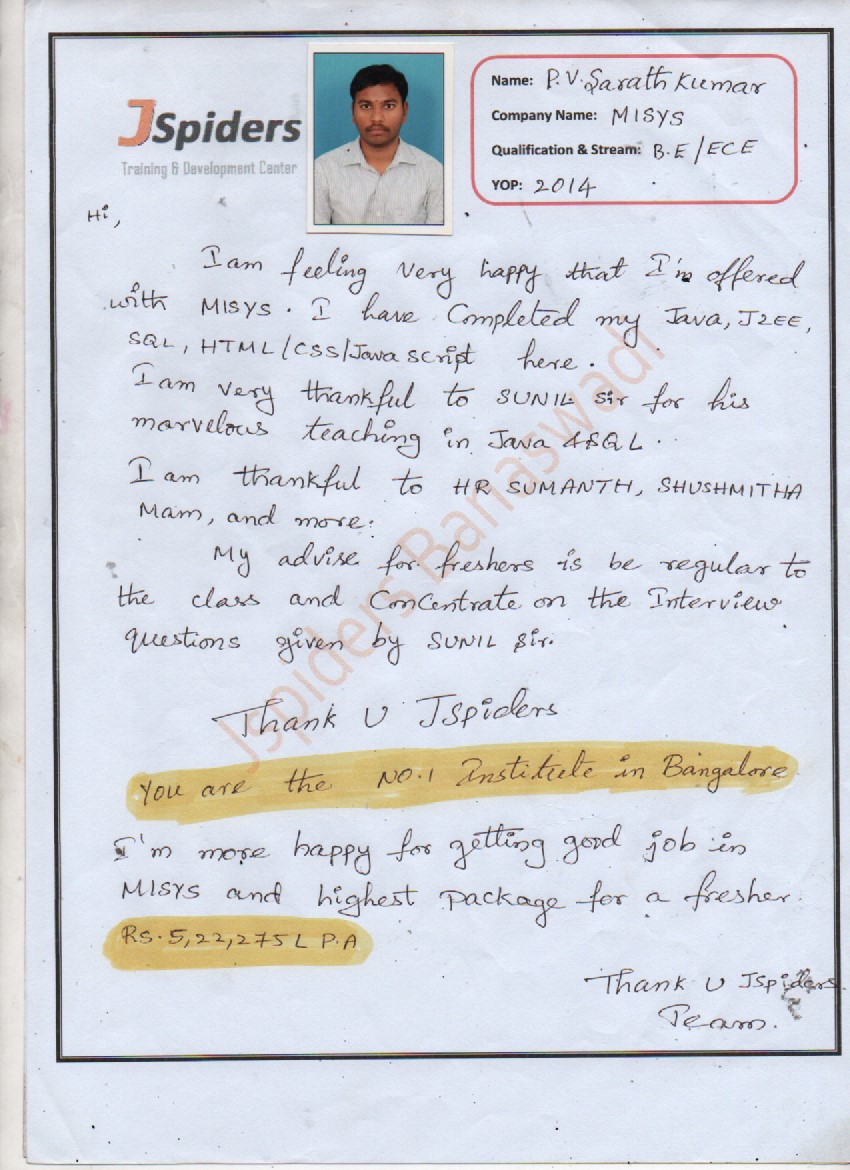 JSpiders
Training & Development Center
Name: P.V. Sarath Kumar
Company Name: MISYS
Qualification & Stream: B.E/ECE
YOP: 2014
Hi,
I am feeling very happy that I'm offered
with MISYS. I have Completed my Java, J2EE,
SQL, HTML/CSS/Java script here.
I am very thankful to SUNIL sir for his
marvelous teaching in Java & SQL..
I am thankful to HR SUMANTH, SHUSHMITHA
Mam, and more.
My advise for freshers is be regular to
the class and Concentrate on the Interview
questions given by SUNIL Sir.
Thank U JSpiders
You are the NO.1 Institute in Bangalore
I'm more happy for getting good job in
MISYS and highest Package for a fresher.
RS. 5,22,275 L P.A
Thank U JSpiders
Team.
Jspiders Banaswadi